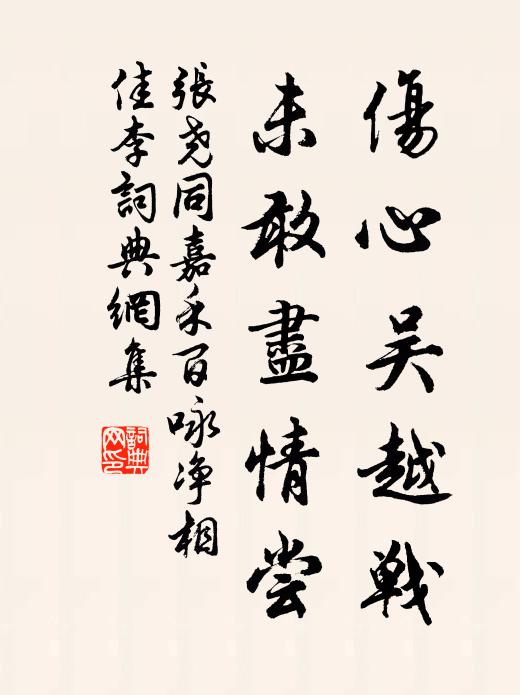 傷心吴越戦
未敢盡情尝
張尧同嘉禾百咏净相
佳李詞典網集
詞典
网印